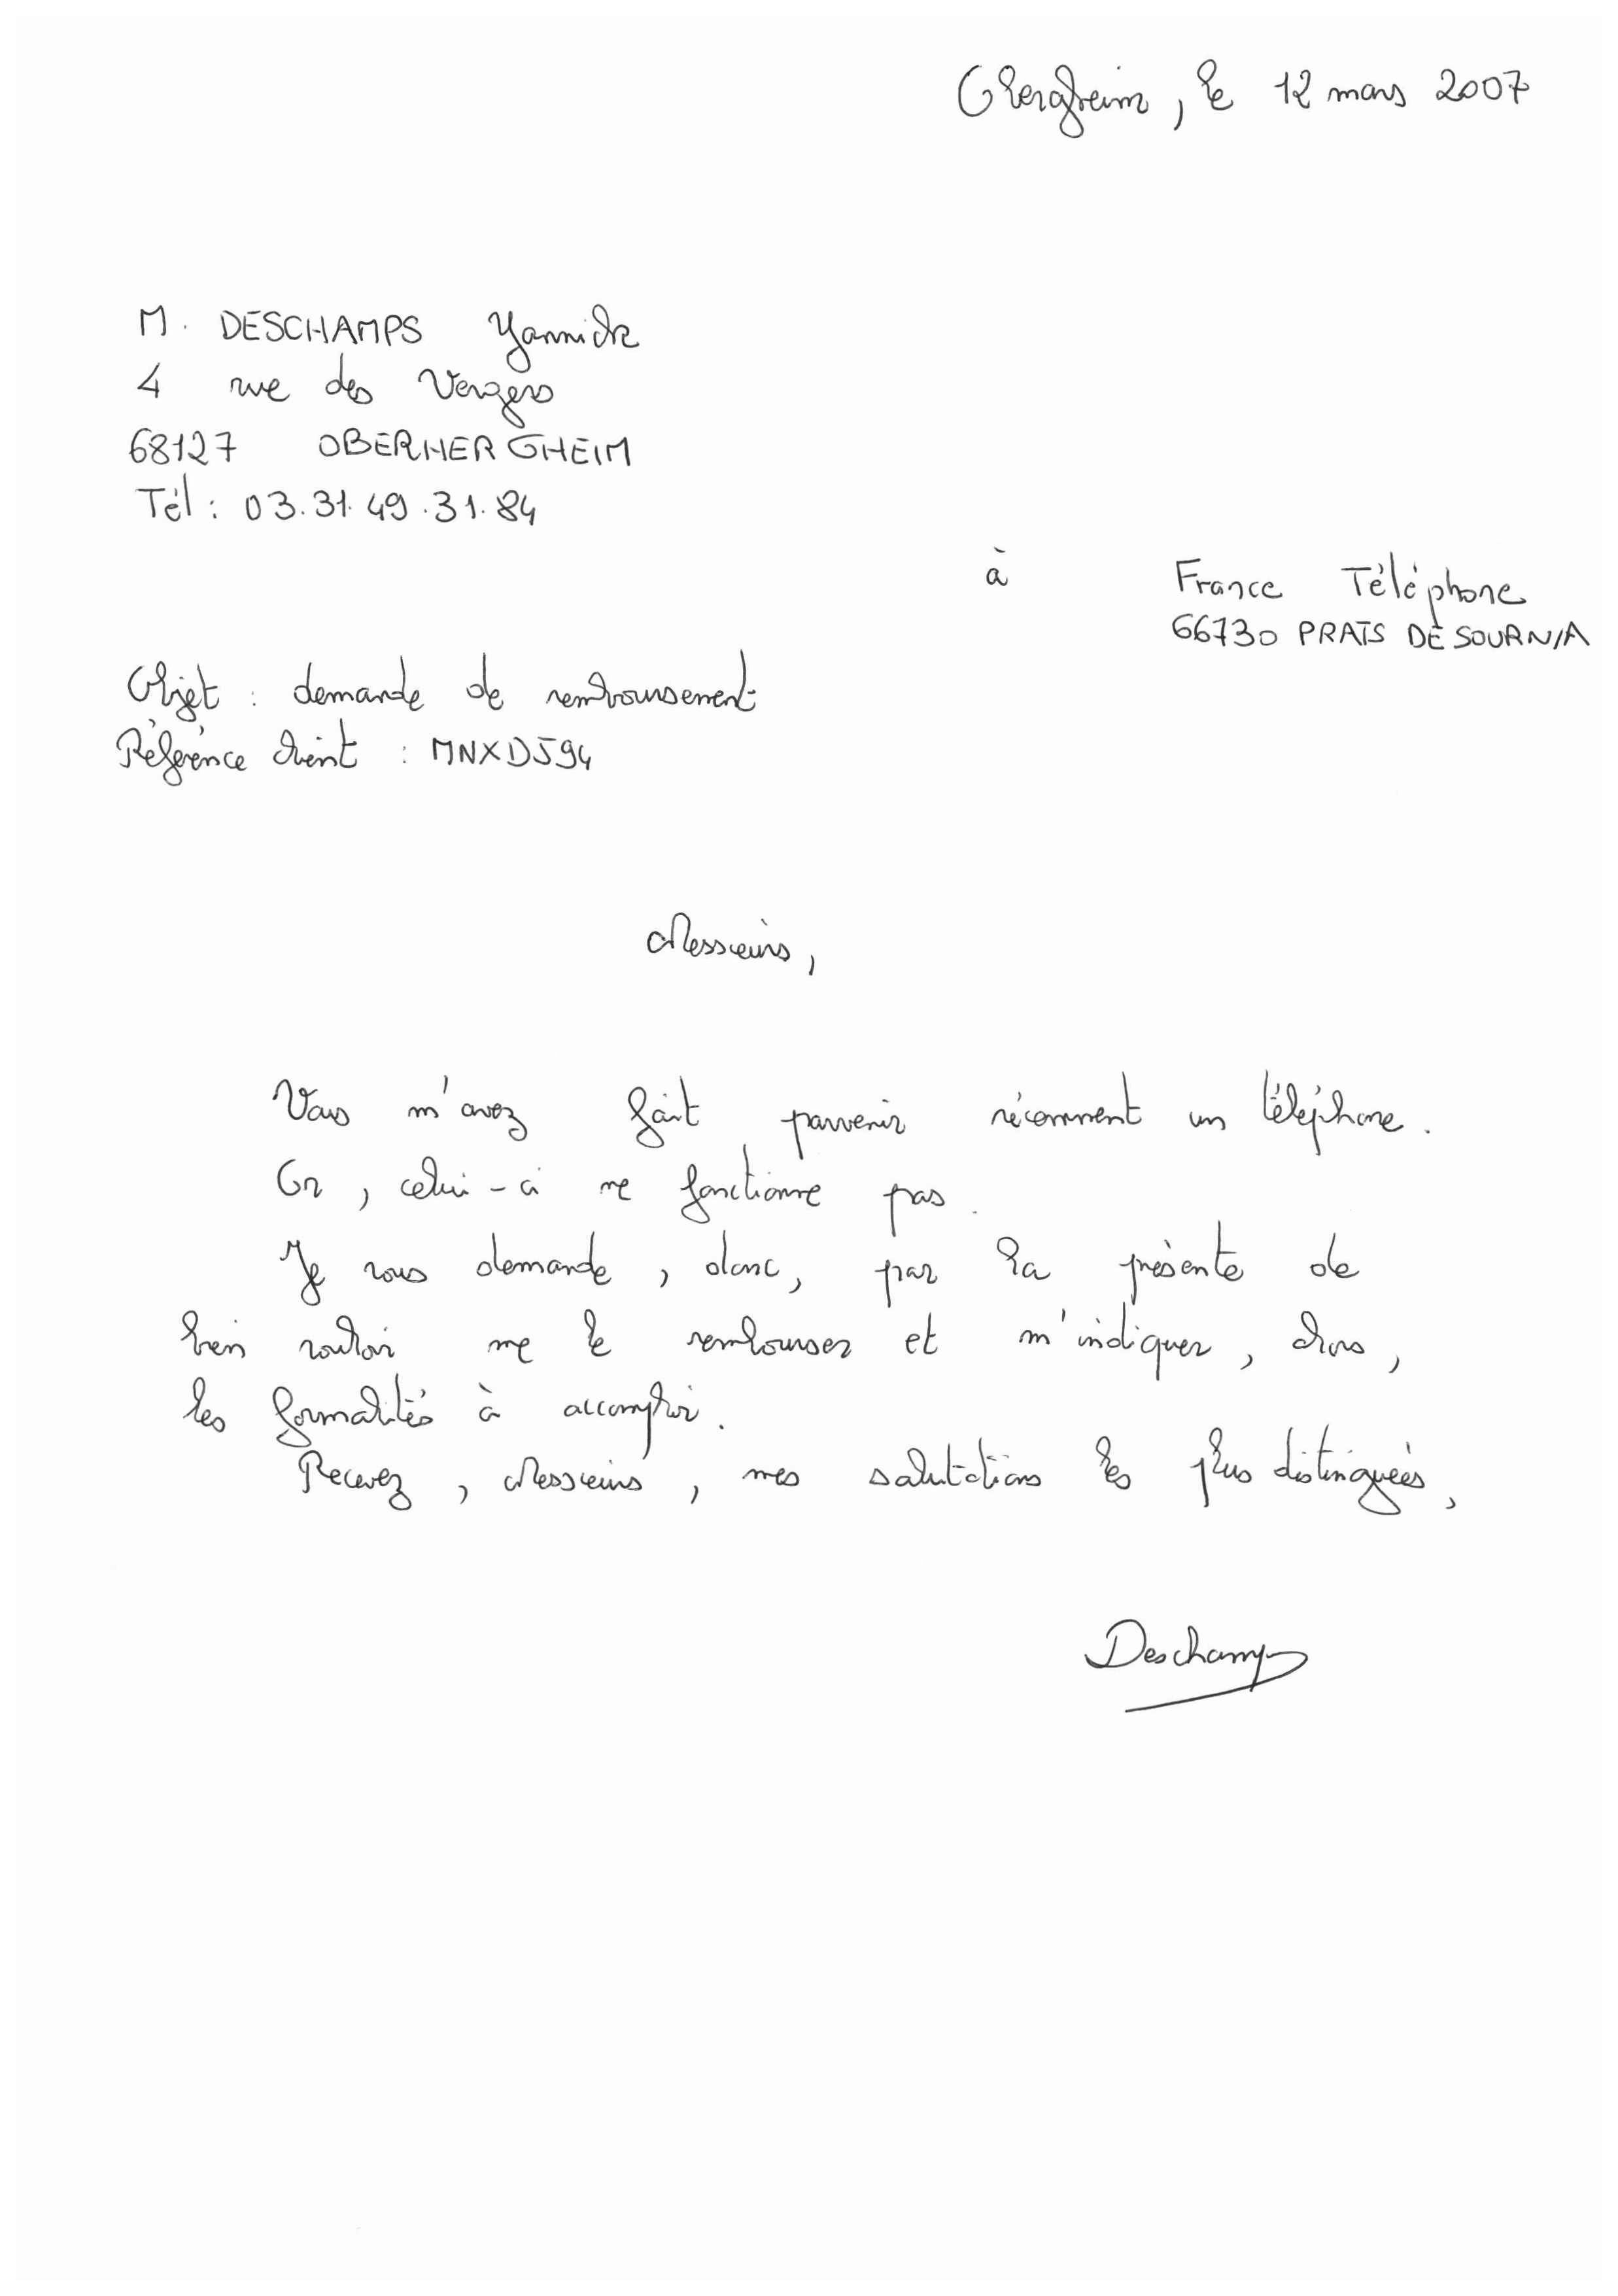 , le 12 mars 2007
M. DESCHAMPS Yannick
4 rue des Vergers
68127 OBERHERGHEIM
Tél : 03.31.49.31.84
à France Téléphone
66730 PRATS DE SOURNIA
Objet : demande de remboursement
Référence client : MNXDJ94
Messieurs,
Vous m'avez fait parvenir récemment un téléphone.
Or, celui-ci ne fonctionne pas.
Je vous demande, donc, par la présente de
bien vouloir me le rembourser et m'indiquer, alors,
les formalités à accomplir.
Recevez, Messieurs, mes salutations les plus distinguées,
Deschamps